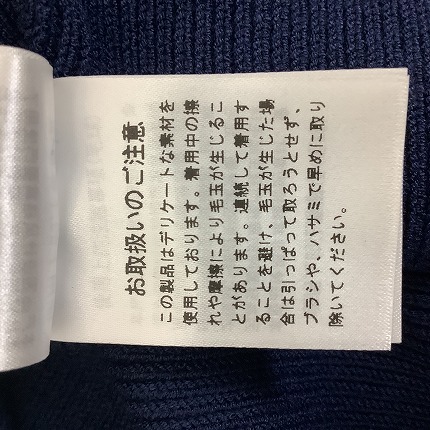 お取扱いのご注意
この製品はデリケートな素材を
使用しております。着用中の擦
れや摩擦により毛玉が生じるこ
とがあります。連続して着用す
ることを避け、毛玉が生じた場
合は引っぱって取ろうとせず、
ブラシや、ハサミで早めに取り
除いてください。